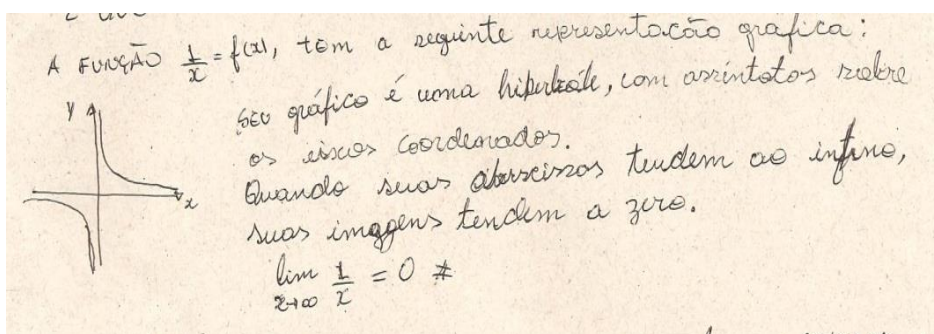 A FUNÇÃO 1/x = f(x), tem a seguinte representação grafica:
Seu gráfico é uma hiperbóle, com assíntotos sobre
os eixos coordenados.
Quando suas abscissas tendem ao infino,
suas imagens tendem a zero.
lim x→∞ 1/x = 0 #
y
x